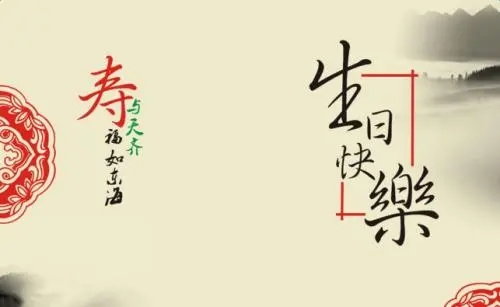 寿
与天齐
福如东海
生日快樂